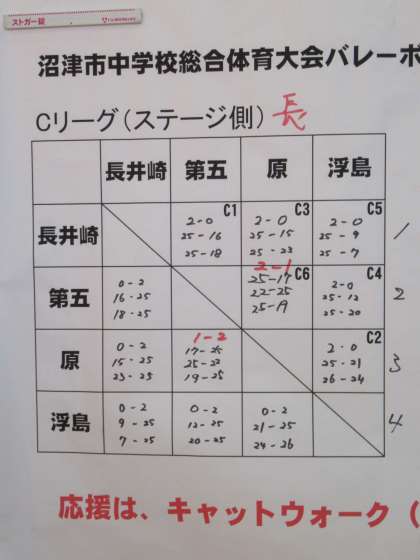 ストガー錠
沼津市中学校総合体育大会バレーボ
Cリーグ(ステージ側) 長
長井崎 第五 原 浮島
長井崎 C1 2-0 25-16 25-18 C3 2-0 25-15 25-23 C5 2-0 25-9 25-7 1
第五 0-2 16-25 18-25 2-1 C6 25-17 22-25 25-19 C4 2-0 25-12 25-20 2
原 0-2 15-25 23-25 1-2 17-25 25-22 19-25 C2 2-0 25-21 26-24 3
浮島 0-2 9-25 7-25 0-2 12-25 20-25 0-2 21-25 24-26 4
応援は、キャットウォーク(